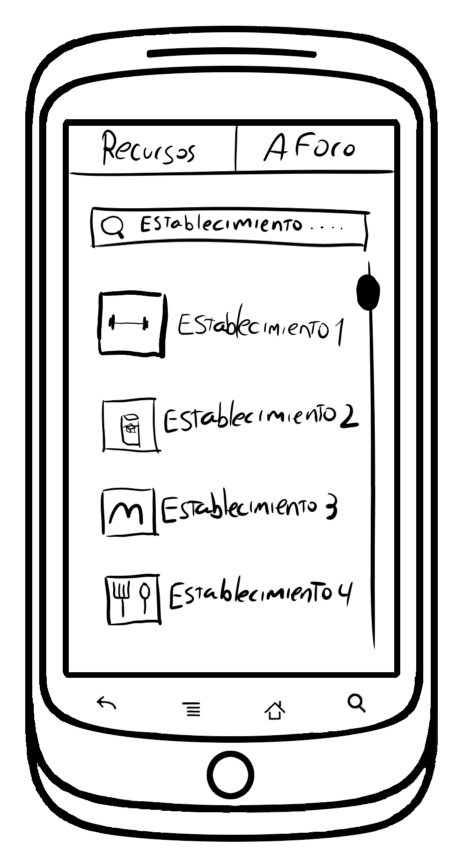 Recursos
Aforo
Establecimiento ....
Establecimiento 1
Establecimiento 2
Establecimiento 3
Establecimiento 4